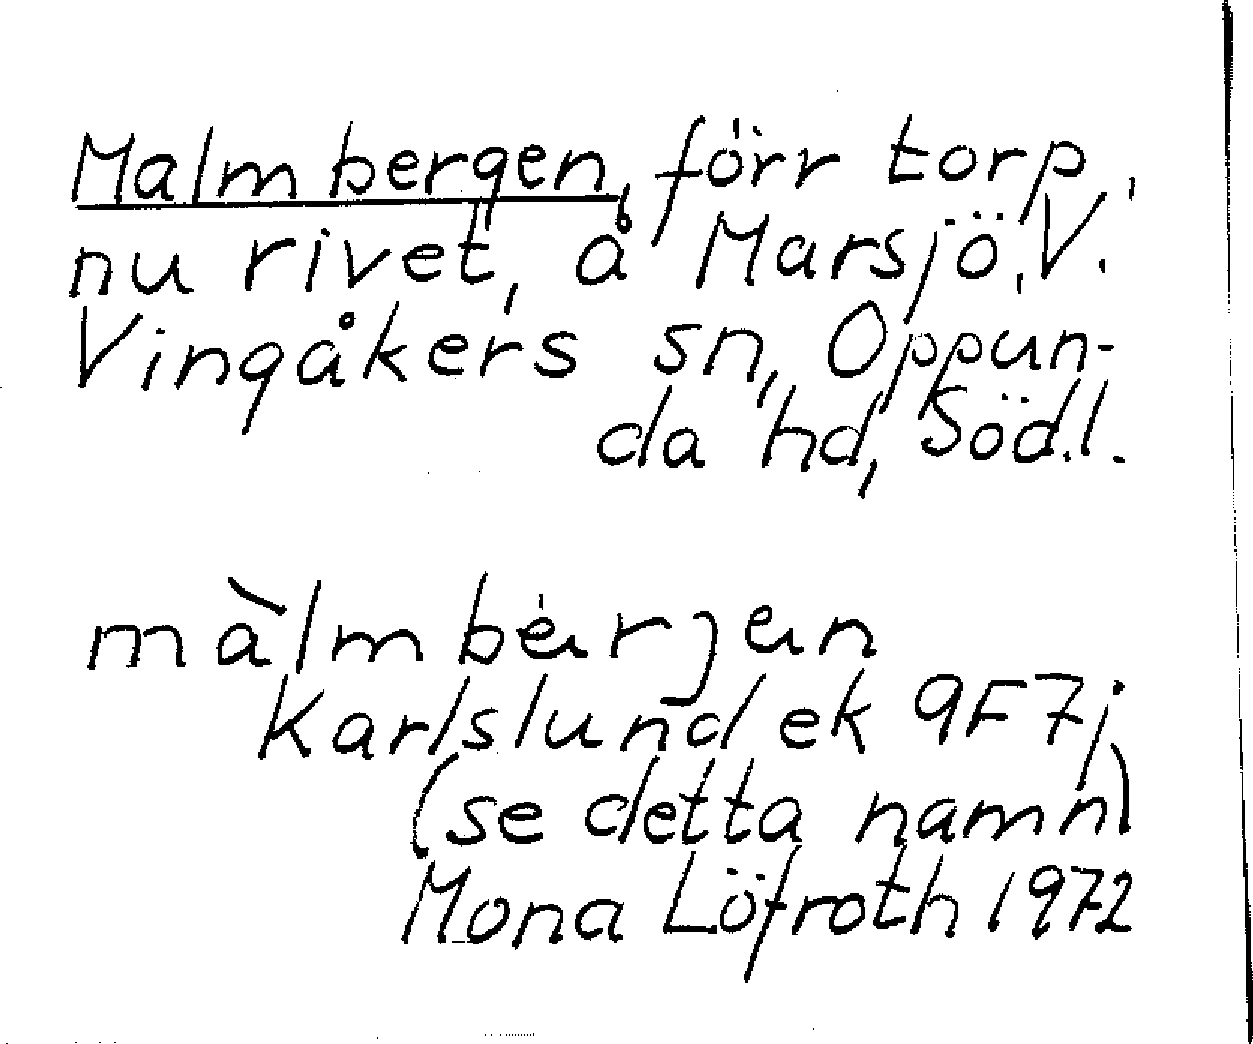 Malmbergen, förr torp,
nu rivet, å Marsjö, V.
Vingåkers sn, Oppun-
da hd, Söd.l.
màlmbærjen
Karlslund ek 9F7j
(se detta namn)
Mona Löfroth 1972